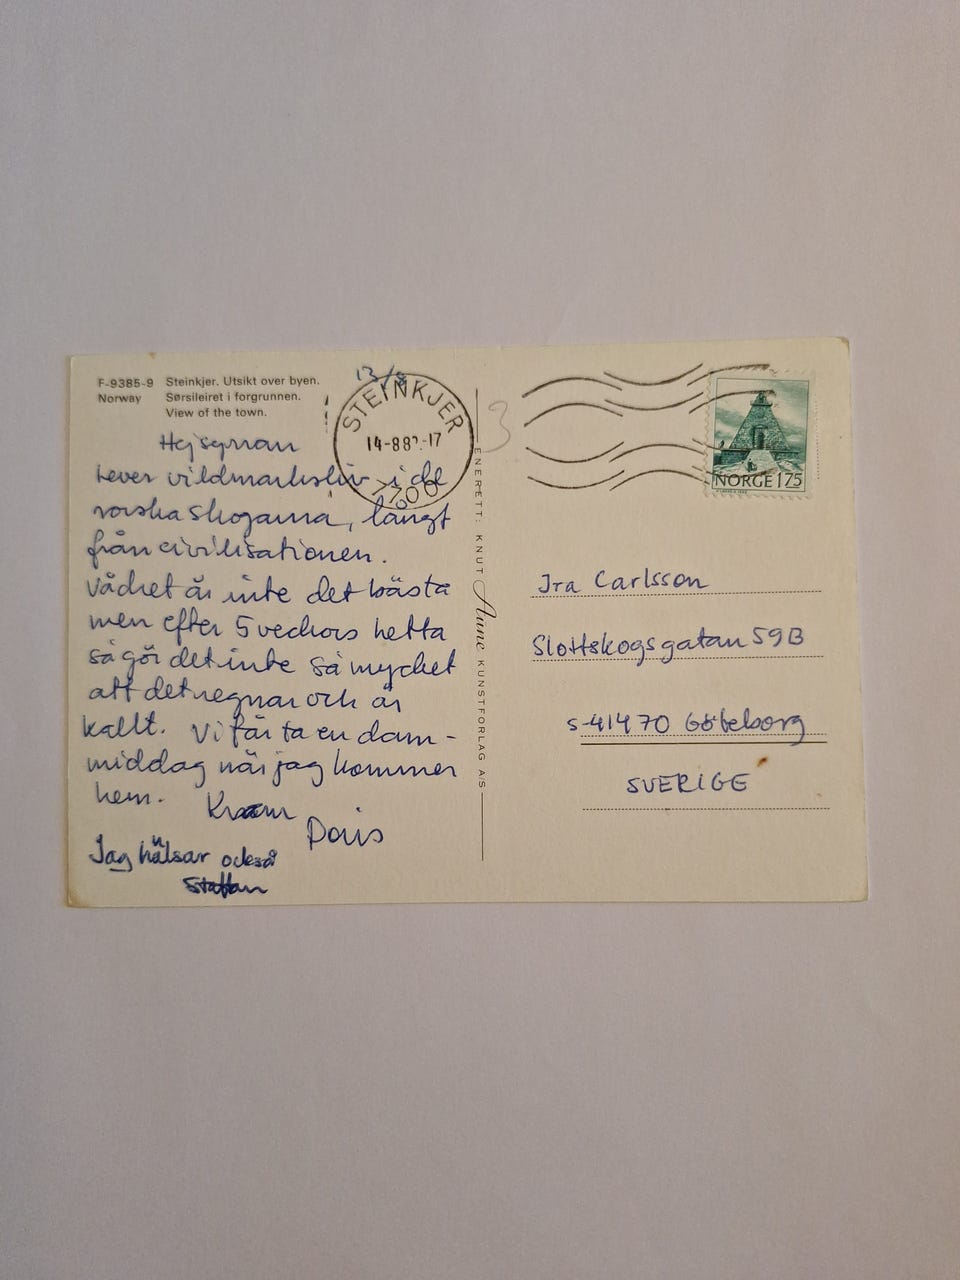 F-9385-9 Steinkjer. Utsikt over byen.
Norway Sørsileiret i forgrunnen.
View of the town.
13/8
STEINKJER
14-88?-17
7700
3
NORGE 175
Hejsynan
Lever vildmarksliv i de
norska skogarna, långt
från civilisationen.
Vädret är inte det bästa
men efter 5 veckors hetta
så gör det inte så mycket
att det regnar och är
kallt. Vi får ta en dam-
middag när jag kommer
hem. Kram
Doris
Jag hälsar också
Staffan
ENERETT: KNUT Aune KUNSTFORLAG A/S
Ira Carlsson
Slottskogsgatan 59B
S-41470 Göteborg
SVERIGE